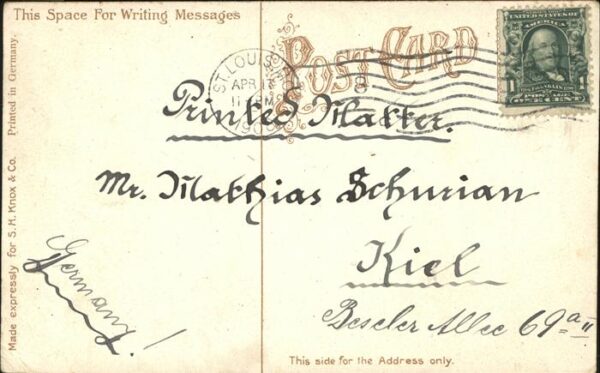 This Space For Writing Messages
POST CARD
UNITED STATES OF AMERICA
1 1
ONE CENT
ST. LOUIS
APR
Printed Matter.
Mr. Mathias Schurian
Kiel
Beseler Allee 69a II
Germany!
Made expressly for S. H. Knox & Co. Printed in Germany.
This side for the Address only.